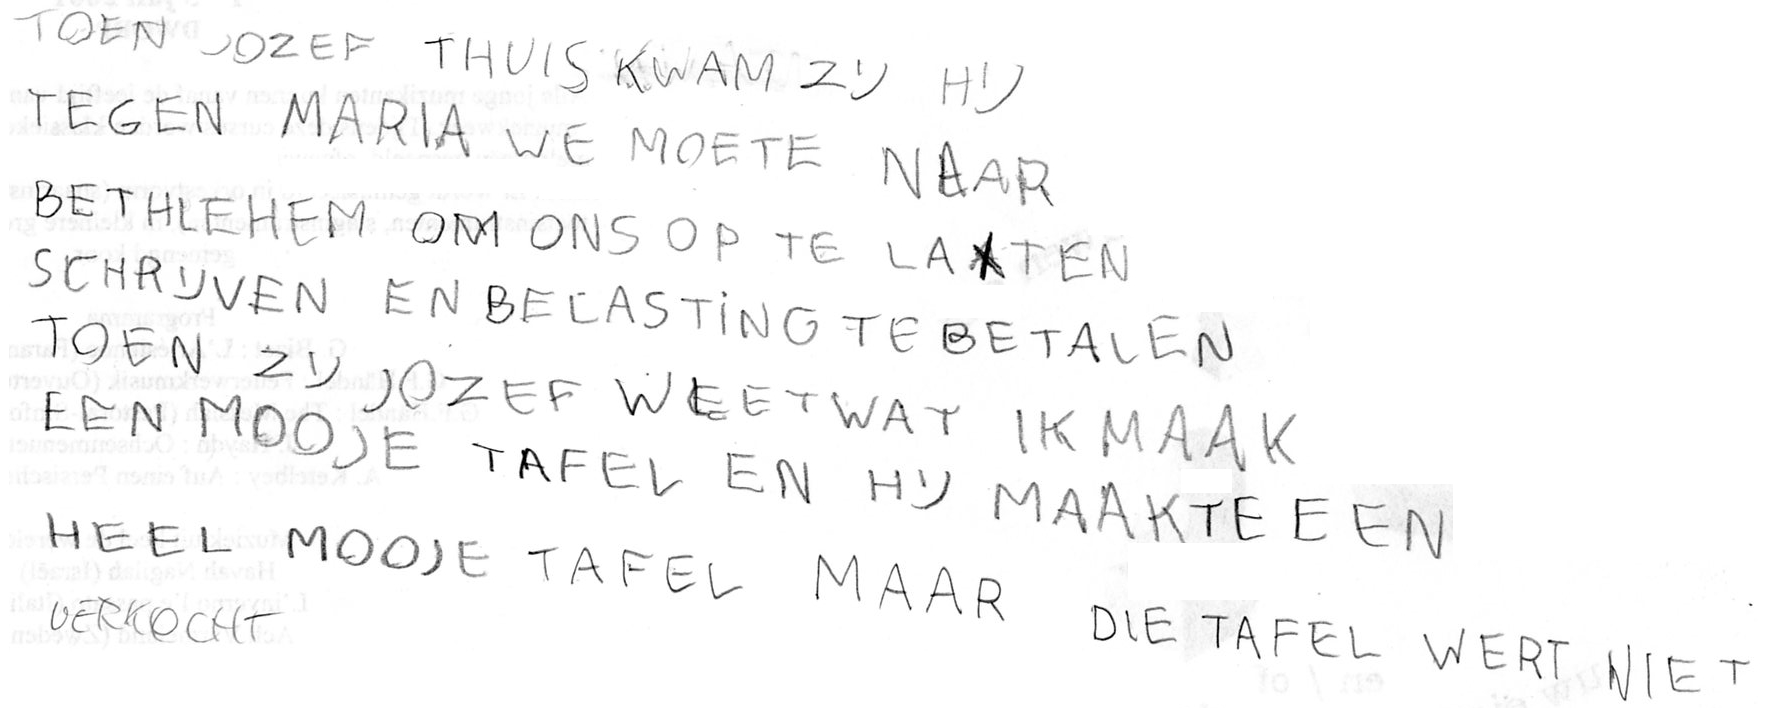 TOEN JOZEF THUIS KWAM ZIJ HIJ
TEGEN MARIA WE MOETE NAAR
BETHLEHEM OM ONS OP TE LATEN
SCHRIJVEN EN BELASTING TE BETALEN
TOEN ZIJ JOZEF WEET WAT IK MAAK
EEN MOOJE TAFEL EN HIJ MAAKTE EEN
HEEL MOOJE TAFEL MAAR DIE TAFEL WERT NIET
VERKOCHT